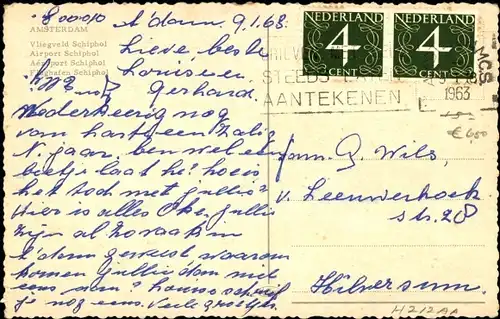 800010
A'dam. 9.1.63.
AMSTERDAM
Vliegveld Schiphol
Airport Schiphol
Aéroport Schiphol
Flughafen Schiphol
Lieve beste
Louise en
Gerhard.
Wederkerig nog
van harte een zalig
N. jaar, ben wel een
beetje laat hè! hoe is
het toch met jullie?
Hier is alles Oke, jullie
zijn al zo vaak in
A'dam geweest waarom
komen jullie dan niet
eens aan? Louise schrijf
je nog eens. Vele groetjes.
NEDERLAND
4
CENT
NEDERLAND
4
CENT
STEEDS
AANTEKENEN
1963
€ 6,50
fam. G. Wils,
v. Leeuwenhoek
str. 28
Hilversum.
H212AA